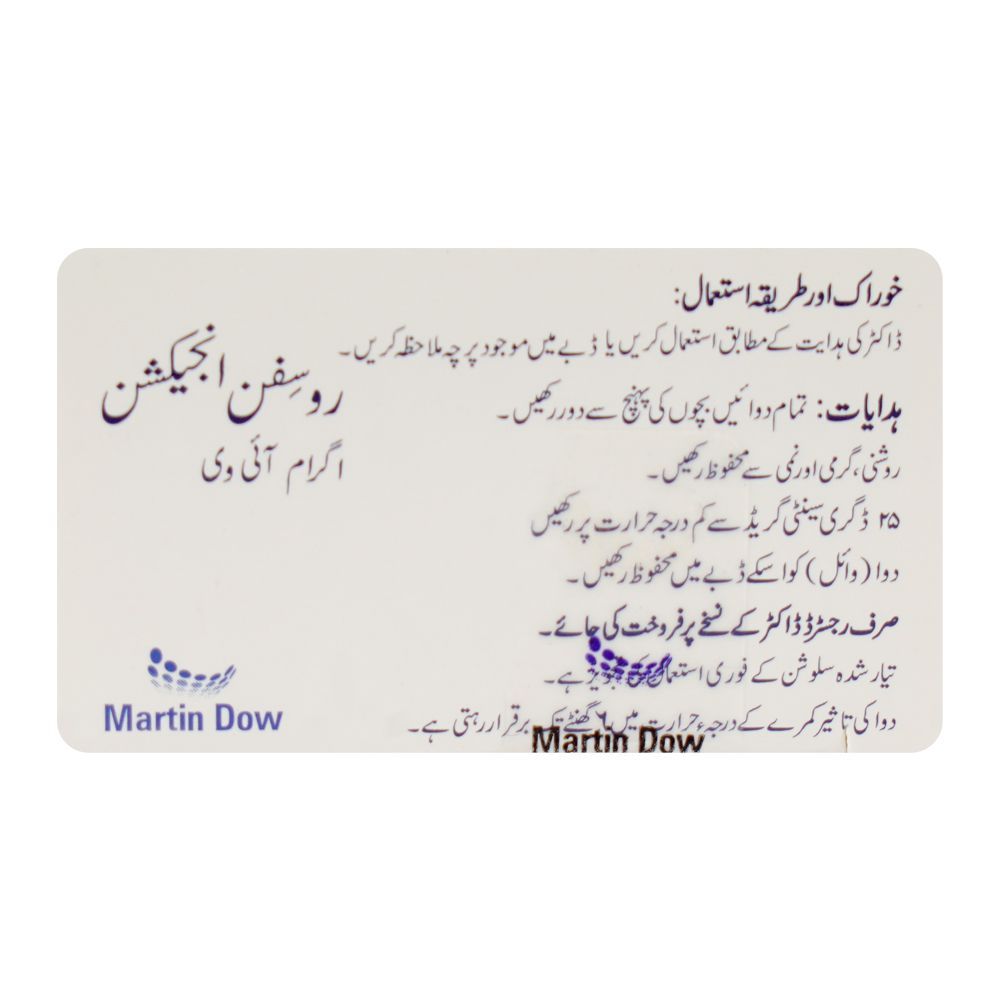 خوراک اور طریقہ استعمال:
ڈاکٹر کی ہدایت کے مطابق استعمال کریں یا ڈبے میں موجود پرچہ ملاحظہ کریں۔
ہدایات: تمام دوائیں بچوں کی پہنچ سے دور رکھیں۔
روشنی، گرمی اور نمی سے محفوظ رکھیں۔
۲۵ ڈگری سینٹی گریڈ سے کم درجہ حرارت پر رکھیں
دوا (وائل) کو اسکے ڈبے میں محفوظ رکھیں۔
صرف رجسٹرڈ ڈاکٹر کے نسخے پر فروخت کی جائے۔
تیار شدہ سلوشن کے فوری استعمال ہے۔
دوا کی تاثیر کمرے کے درجہء حرارت میں ۶ گھنٹے تک برقرار رہتی ہے۔
Martin Dow
روسِفن انجیکشن
۱ گرام آئی وی
Martin Dow